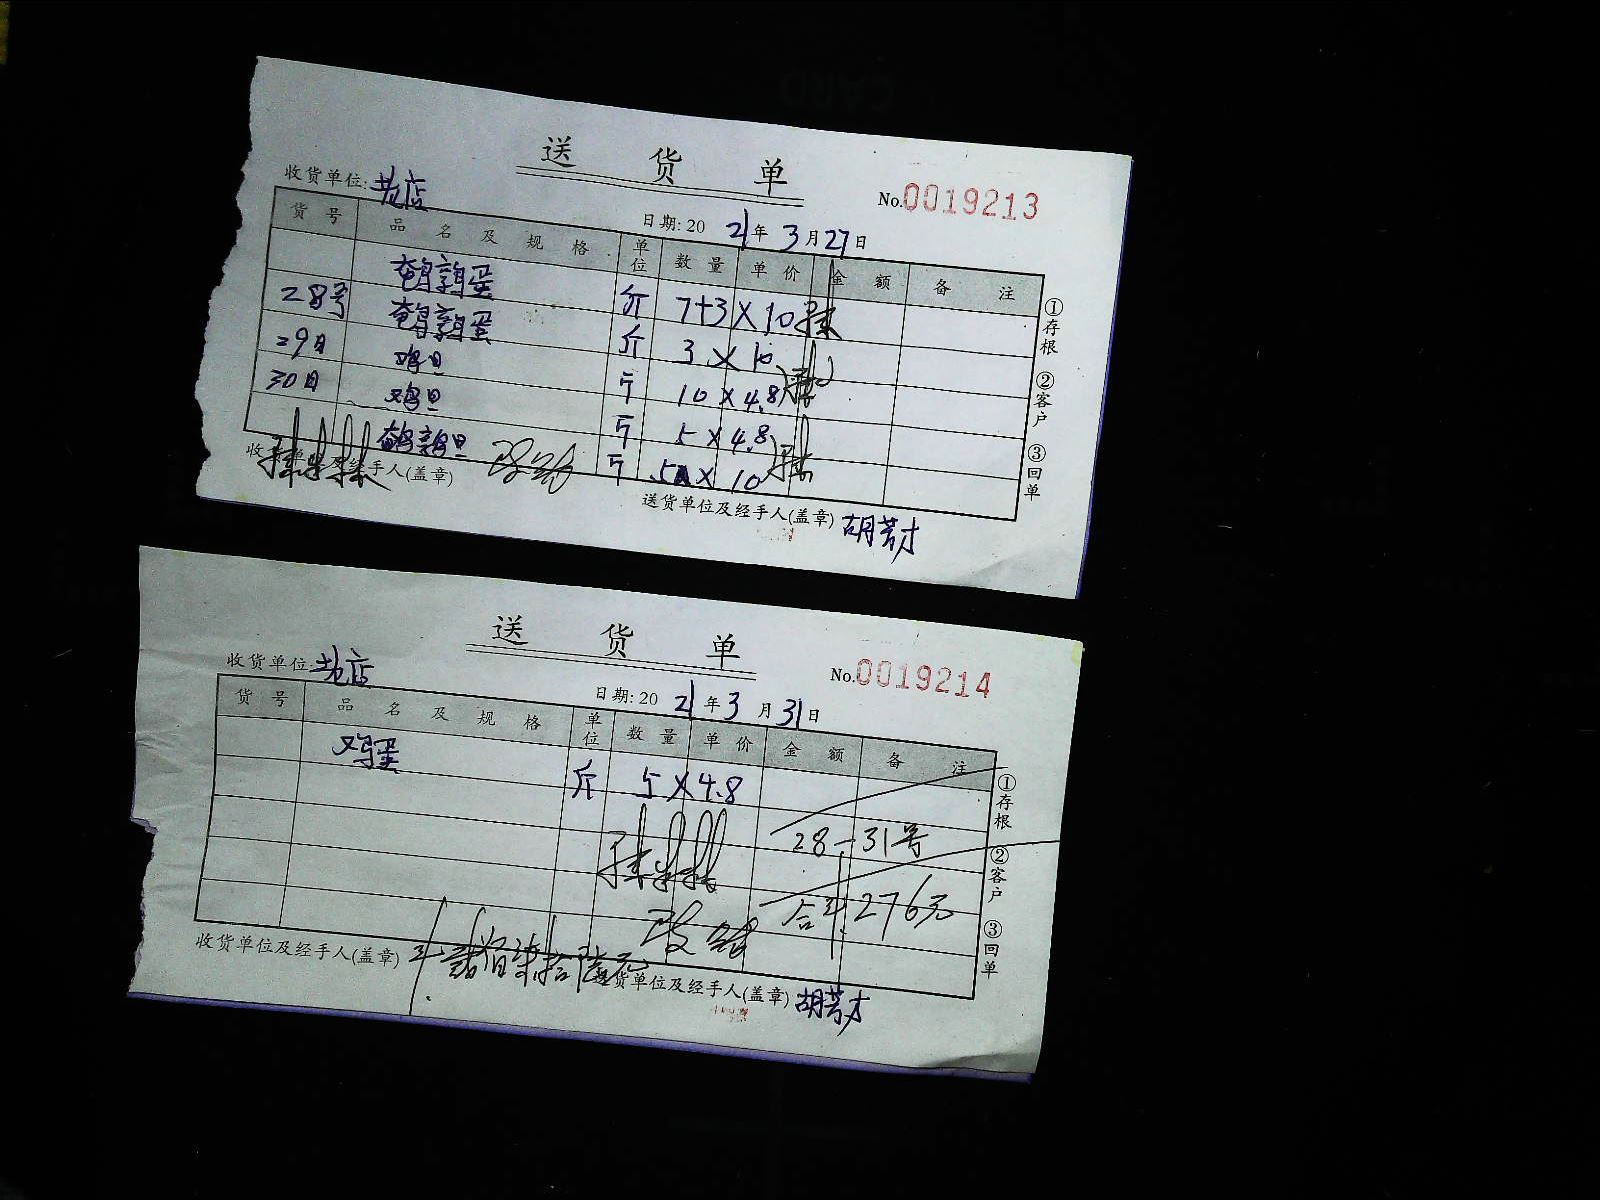 送 货 单
收货单位: 老店
No.0019213
日期: 20 21 年 3 月 27 日
货 号 品 名 及 规 格 单位 数 量 单 价 金 额 备 注
鹌鹑蛋 斤 7+3 × 10
28号 鹌鹑蛋 斤 3 × 10
29日 鸡旦 斤 10 × 4.8
30日 鸡旦 斤 5 × 4.8
鹌鹑旦 斤 5 × 10
收货单位及经手人(盖章)
送货单位及经手人(盖章) 胡芳才
①存根 ②客户 ③回单
送 货 单
收货单位: 老店
No.0019214
日期: 20 21 年 3 月 31 日
货 号 品 名 及 规 格 单位 数 量 单 价 金 额 备 注
鸡蛋 斤 5 × 4.8
28-31号
合计: 276元
收货单位及经手人(盖章) 贰佰柒拾陆元
送货单位及经手人(盖章) 胡芳才
①存根 ②客户 ③回单